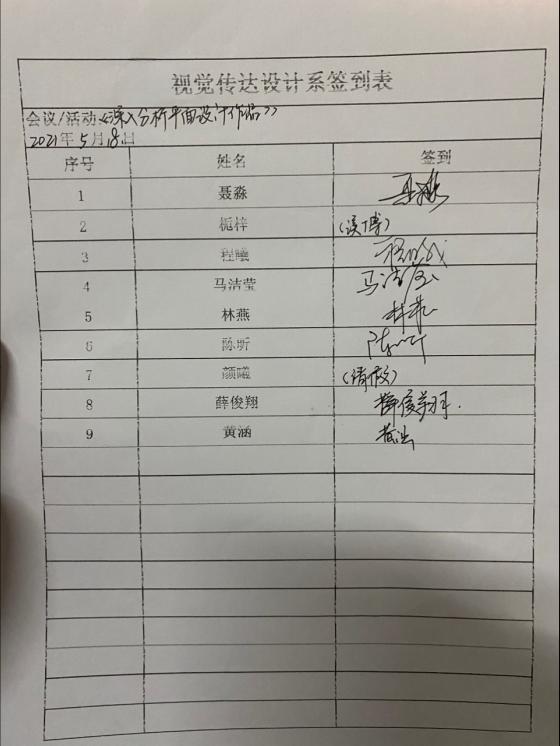 视觉传达设计系签到表
会议/活动《深入分析平面设计作品》
2021年5月18日
序号 姓名 签到
1 聂淼 聂淼
2 栀梓 (读博)
3 程曦 程曦
4 马洁莹 马洁莹
5 林燕 林燕
6 陈昕 陈昕
7 颜曦 (请假)
8 薛俊翔 薛俊翔
9 黄涵 黄涵